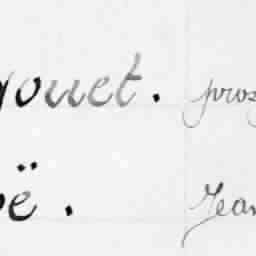 gouet. pros
oë. Jean